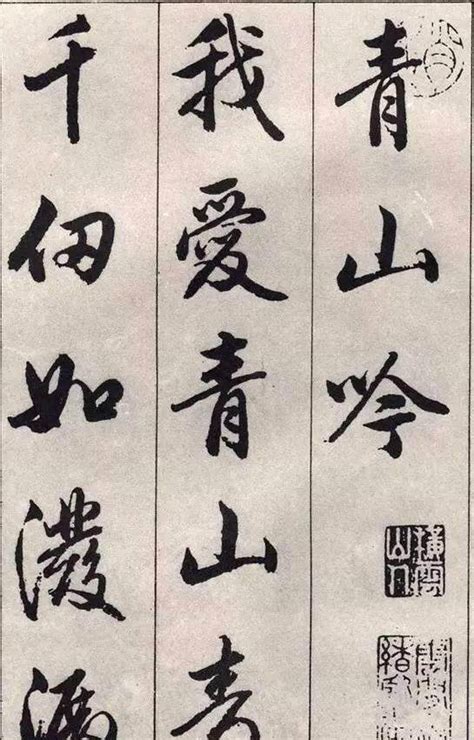 青山吟
我愛青山青
千仞如潑